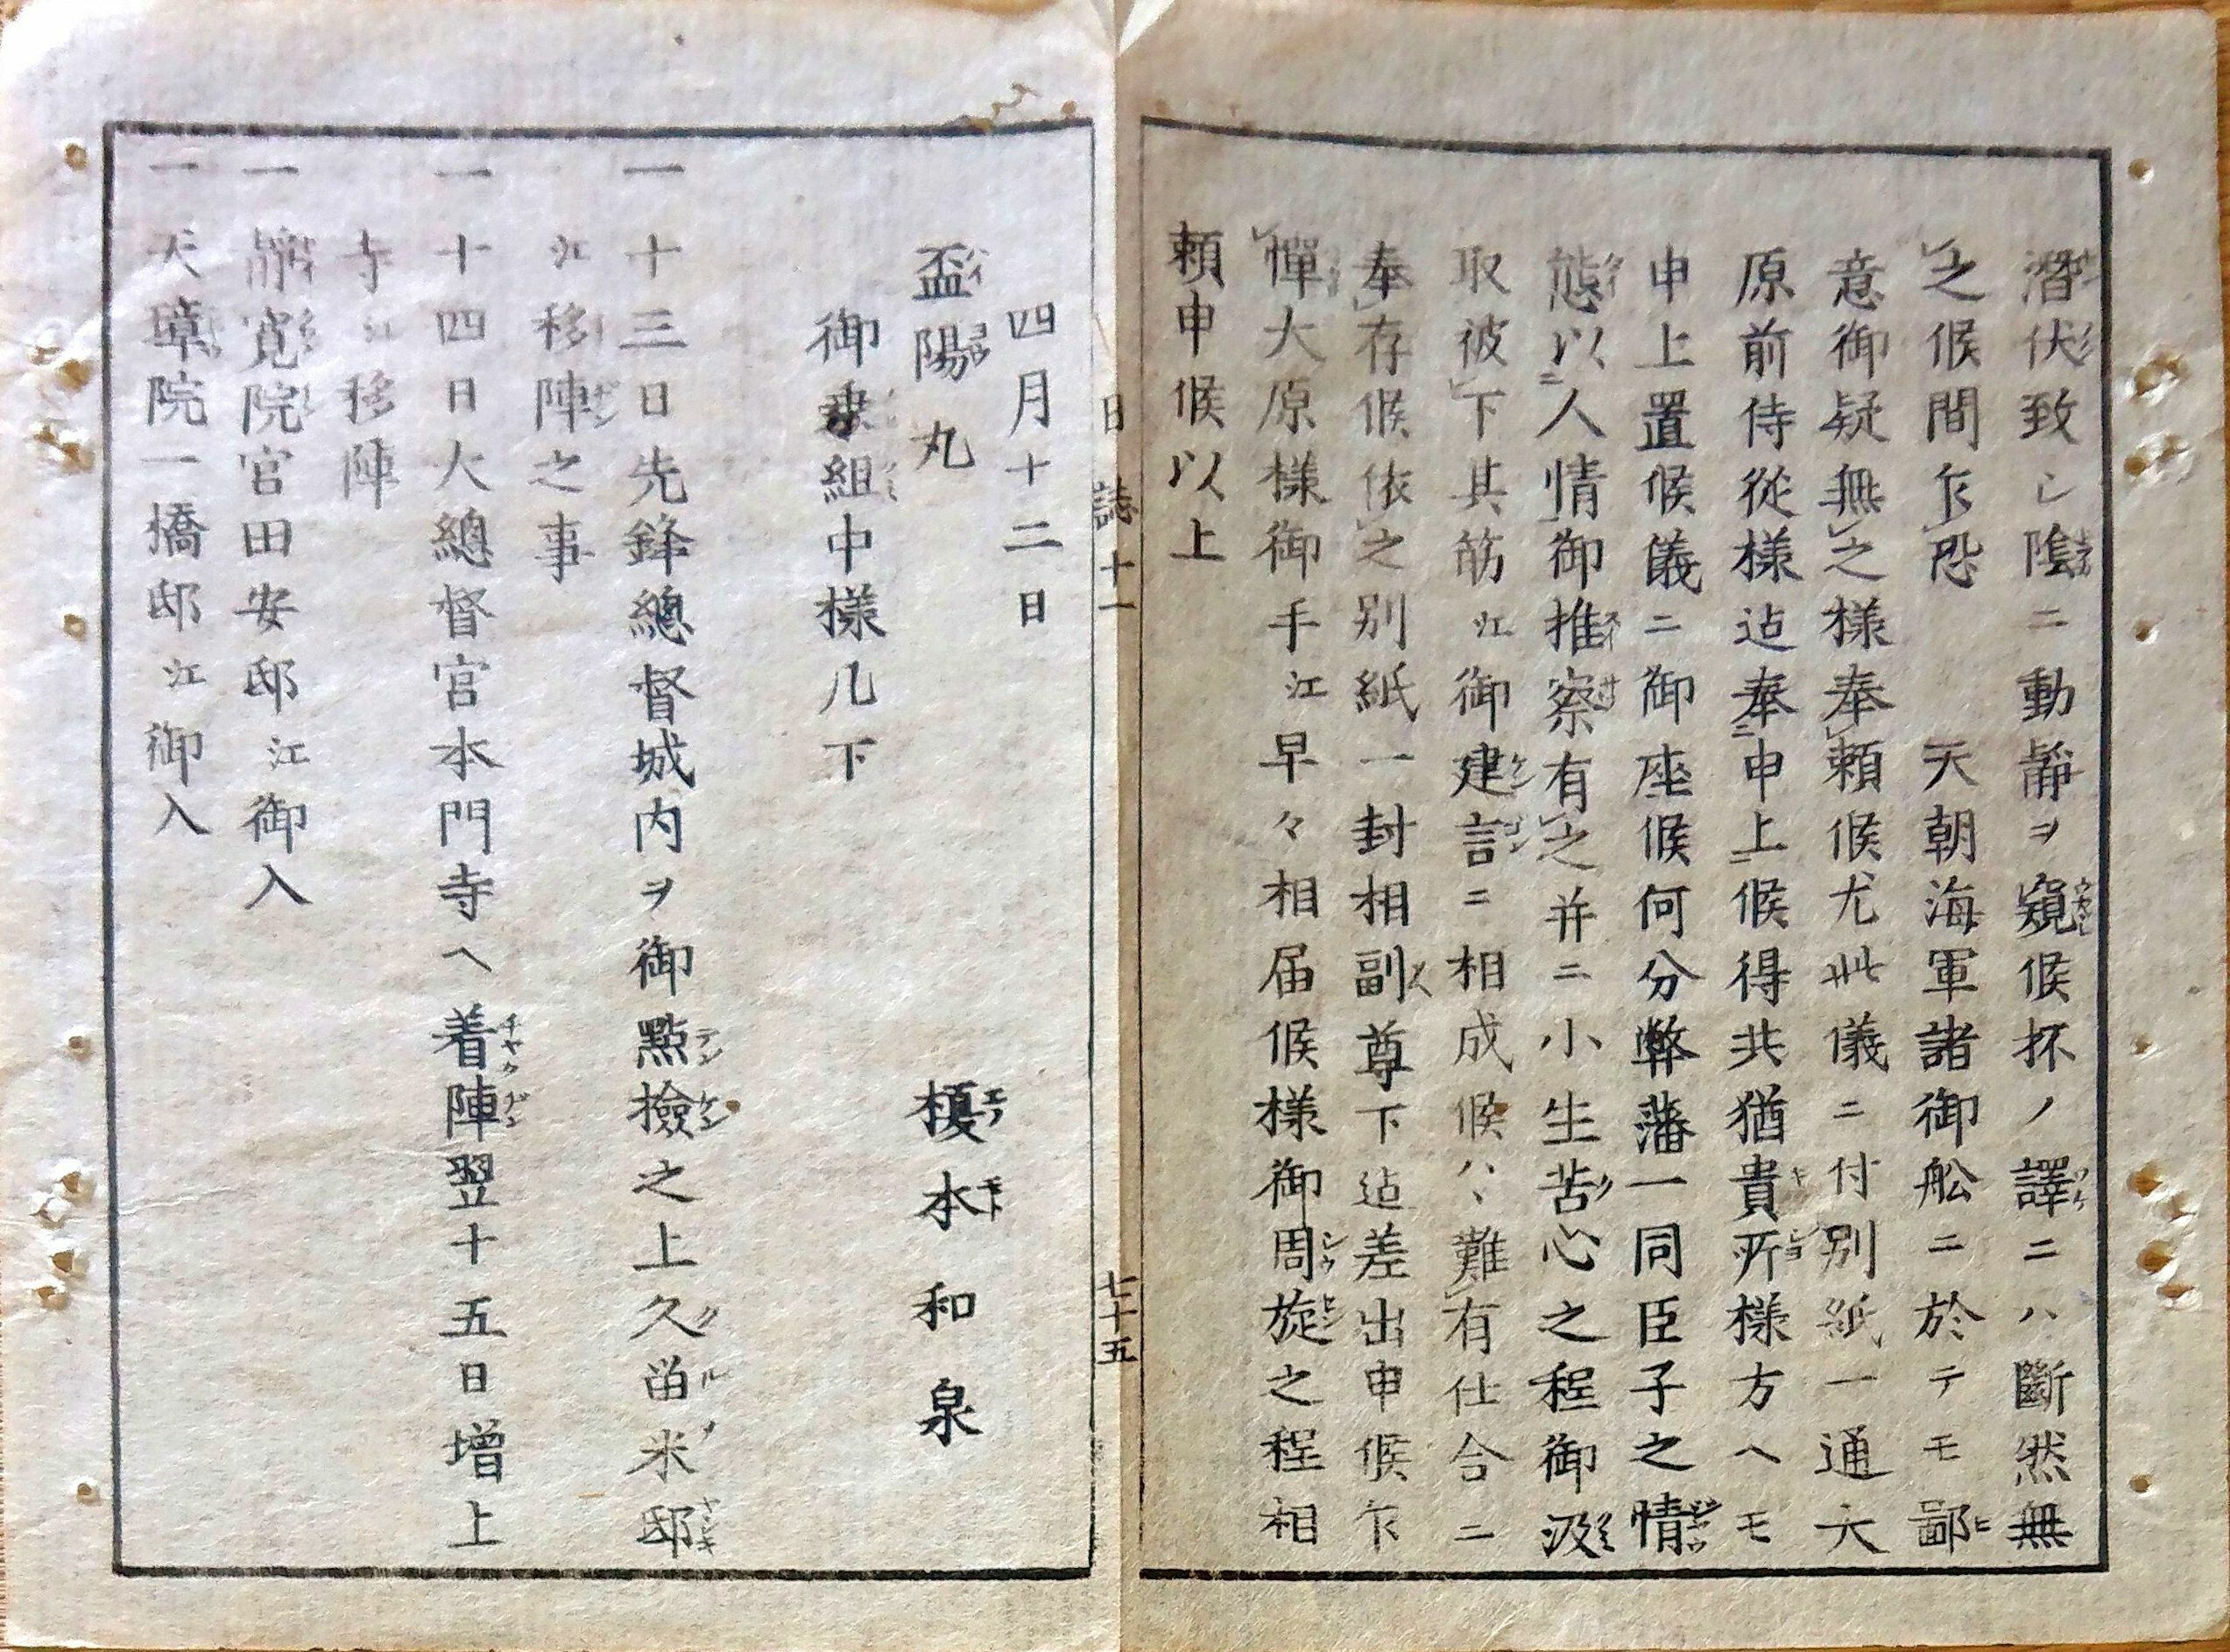 潛伏致シ陰ニ動靜ヲ窺候抔ノ譯ニハ斷然無
之候間乍恐　天朝海軍諸御舩ニ於テモ鄙
意御疑無之樣奉賴候尤此儀ニ付別紙一通大
原前侍從樣迠奉申上候得共猶貴所樣方ヘモ
申上置候儀ニ御座候何分弊藩一同臣子之情
態以人情御推察有之并ニ小生苦心之程御汲
取被下其筋江御建言ニ相成候ハヽ難有仕合ニ
奉存候依之別紙一封相副尊下迠差出申候乍
憚大原樣御手江早々相届候樣御周旋之程相
賴申候以上
日誌十一　七十五
四月十二日
盃陽丸　榎本和泉
御乗組中樣几下
一十三日先鋒總督城内ヲ御點撿之上久畄米邸
江移陣之事
一十四日大總督宮本門寺ヘ着陣翌十五日增上
寺江移陣
一靜寛院宮田安邸江御入
一天璋院一橋邸江御入